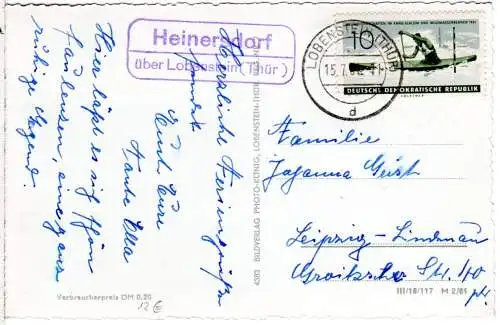 Heinersdorf
über Lobenstein (Thür.)
LOBENSTEIN (THÜR)
15.7.
d
10
DEUTSCHE DEMOKRATISCHE REPUBLIK
Hier läßt es sich schön
faulenzen, eine ganz
ruhige Gegend.
Herzliche Feriengrüße
sendet
Euch Eure
Tante Ella
Familie
Johanna
Leipzig-Lindenau
Str. 40
ptr.
4583 BILDVERLAG PHOTO-KÖNIG, LOBENSTEIN-THÜR.
Verbraucherpreis DM 0,20
12 €
III/18/117 M 2/61